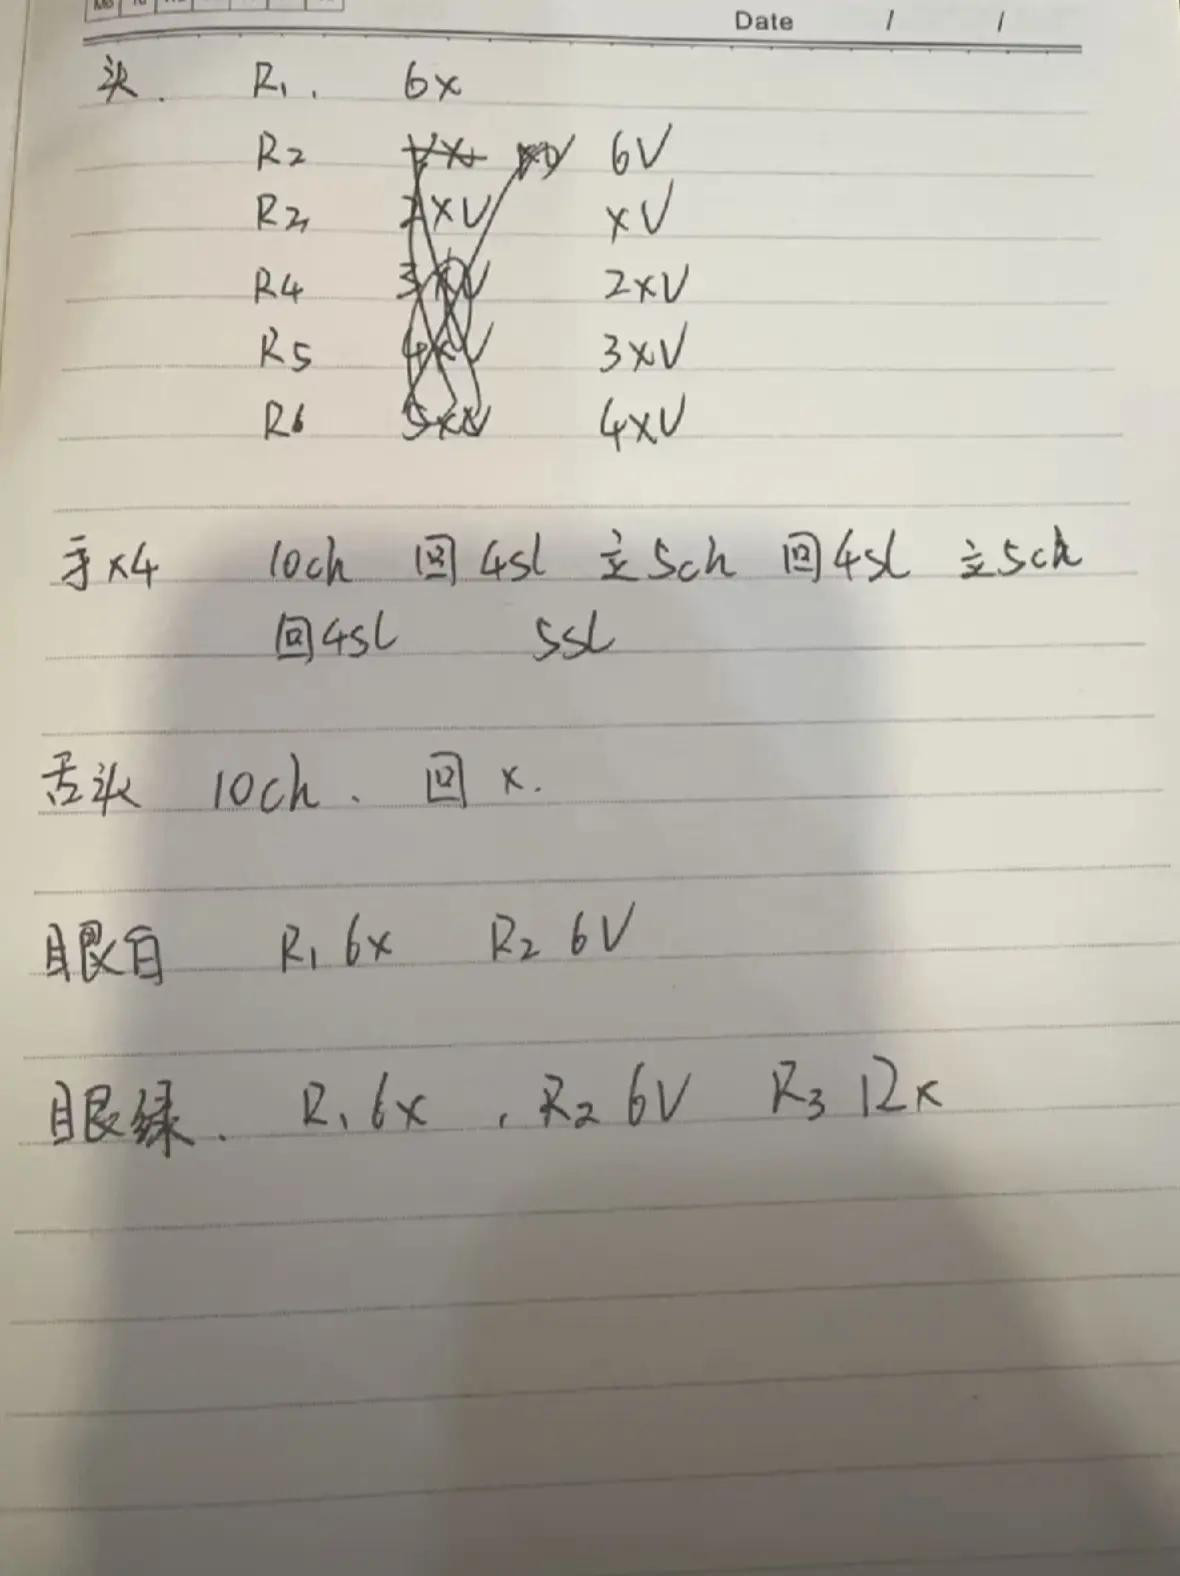 Date / /
头. R1. 6x
R2 6V
R3 2xV xV
R4 3xV 2xV
R5 4xV 3xV
R6 5xV 4xV
手x4 10ch 回4sl 立5ch 回4sl 立5ch
回4sl 5sl
舌头 10ch. 回 x.
眼白 R1 6x R2 6V
眼绿. R1 6x, R2 6V R3 12x